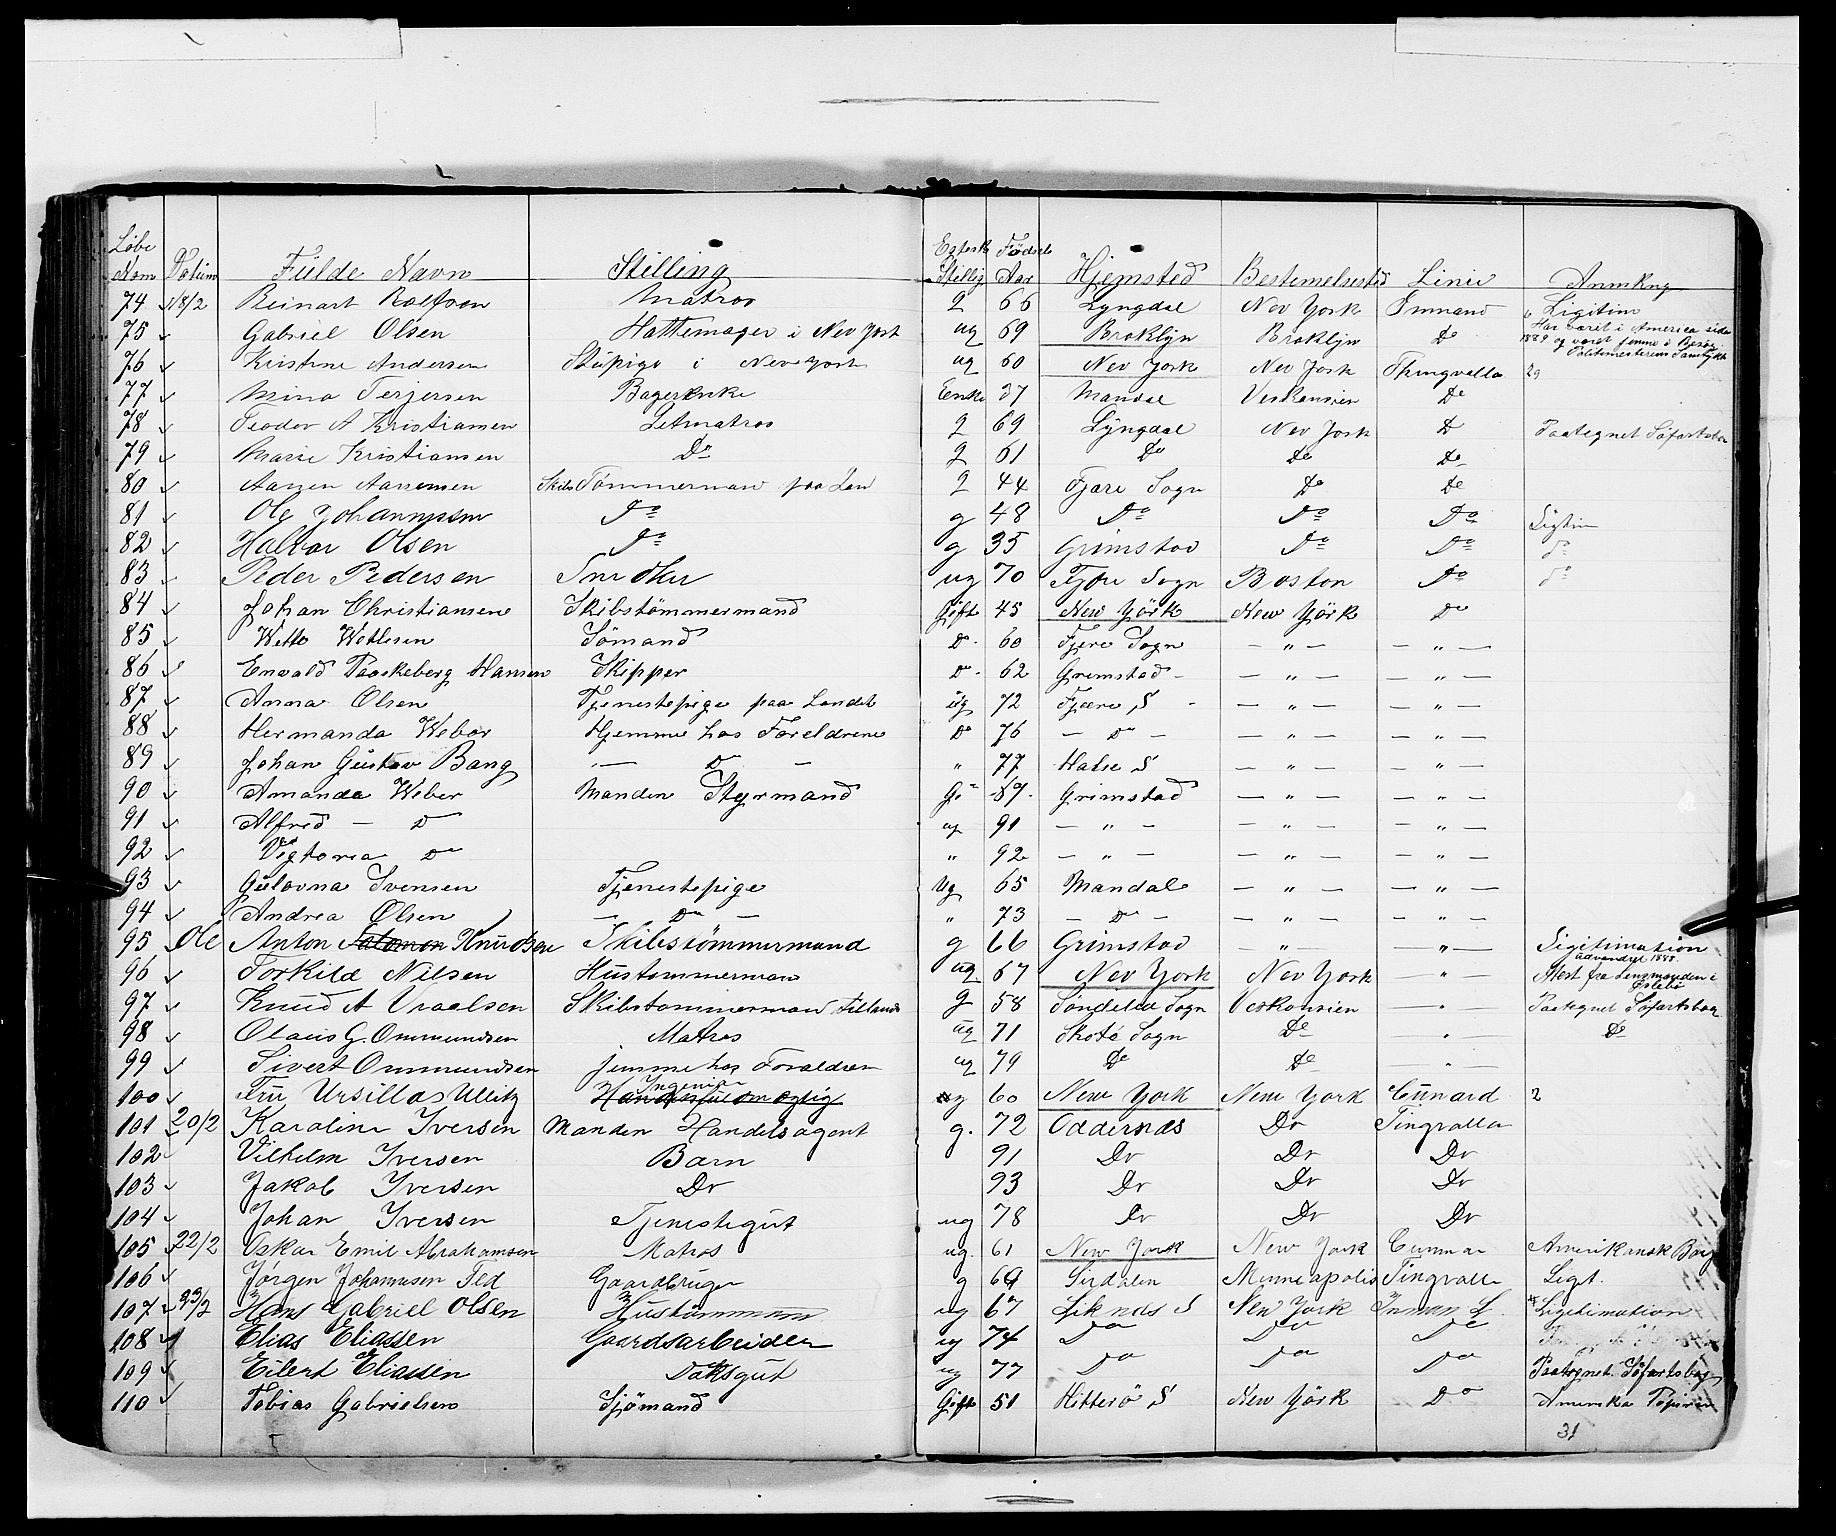 Løbe Nom Datum Fulde Navn Stilling Egtesk Stillig Fødsels Aar Hjemsted Bestemelsested Linie Anmkng
74 18/2 Reinart Matros g 66 Lyngdal Nev York Inmand Ligitim
75 Gabriel Olsen Hattemager i Nev York ug 69 Broklyn Broklyn Do Har varet i America siden 1889 og varet jemme i Besøg. Politimesterens Samtykke
76 Kristine Andersen Stupige i Nev York ug 60 Nev York Nev York Thingvalla 29
77 Mina Terjersen Bagerenke Enke 37 Mandal Viskonsien Do
78 Teodor A Kristiansen Letmatros g 69 Lyngdal Nev York Do Paategnet Søfartsbog
79 Marie Kristiansen Do g 61 Do Do Do
80 Aanen Aanensen Skibs Tømmerman paa Lan g 44 Fjære Sogn Do Do
81 Ole Johannessen Do g 48 Do Do Do Ligtim
82 Halvor Olsen Do g 35 Grimstad Do Do Do
83 Peder Pedersen Snedker ug 70 Fjære Sogn Boston Do Do
84 Johan Christiansene Skibstömmermand Gift 45 New Yörk New Yörk Do
85 Wetle Wetlesen Sømand Do 60 Fjere Sogn — " — — " —
86 Envald Paaskeberg Hansen Skipper Do 62 Grimstad — " — — " —
87 Anna Olsen Tjenestepige paa Landet ug 72 Fjære S — " — — " —
88 Hermanda Weber Hjemme hos Foreldrene Do 76 — Do — — " — — " —
89 Johan Gustav Bang " — Do — " 77 Halse S — " — — " —
90 Amanda Weber Manden Styrmand Gi 69 Grimstad — " — — " —
91 Alfred — Do ug 91 — " — — " — — " —
92 Vigtoria Do " 92 — " — — " — — " —
93 Gulovna Svensen Tjenestepige Ug 65 Mandal — " — — " —
94 Andrea Olsen — Do — " 73 — Do — — " — — " —
95 Ole Anton Salomon Knudsen Skibstömmermand g 66 Grimstad — " — — " — Ligitimation
96 Torkild Nilsen Hustommerman ug 67 Nev York Nev York — " — udvandret 1888. Atest fra Lensmanden i
97 Knud A Vraalsen Skibstommerman Tillands g 58 Søndeled Sogn Viskonsien — " — Paategnet Søfartsbog
98 Olaus G. Ommundsen Matros ug 71 Skotø Sogn Do — " — Do
99 Sivert Ommundsen jemme hos Foraldren ug 79 Do Do — " —
100 Fru Ursilla Ullitz Ingeniør ug 60 New York New York Cunard 2
101 20/2 Karoline Iversen Manden Handelsagent g. 72 Oddernæs Do Tingvalla
102 Vilhelm Iversen Barn 91 Do Do Do
103 Jakob Iversen Do 93 Do Do Do
104 Johan Iversen Tjenestegut ug 78 Do Do Do
105 22/2 Oskar Emil Abrahamsen Matros ug. 61 New York New York Cunnar Amerikansk Borg
106 Jørgen Johannesen Fed Gaardbruger g 69 Sirdalen Minneapolis Tingvalla Ligt.
107 23/2 Hans Gabriel Olsen Hustømmerm ug 67 Liknæs S New York Inman L. Ligitimation
108 Elias Eliassen Gaardsarbeider ug 74 Do Do Do
109 Eilert Eliassen Dæksgut ug 77 Do Do Do Paategnet. Søfartsbog
110 Tobias Gabrielsen Sjömand Gift 51 Hitterö S New Yörk Do Amerika Papirer
31